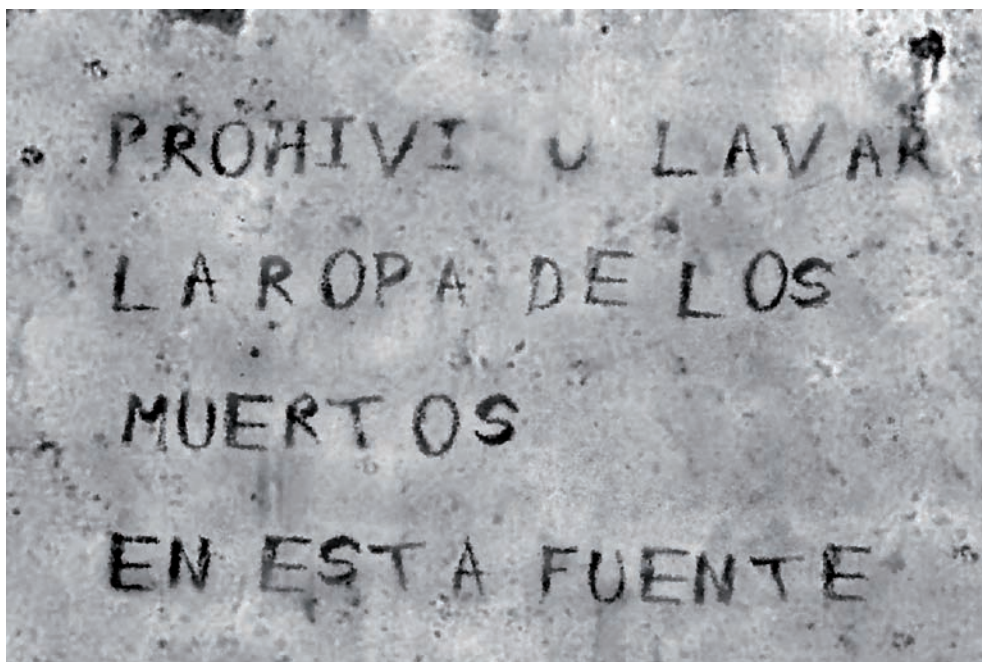 PROHIVI U LAVAR
LA ROPA DE LOS
MUERTOS
EN ESTA FUENTE